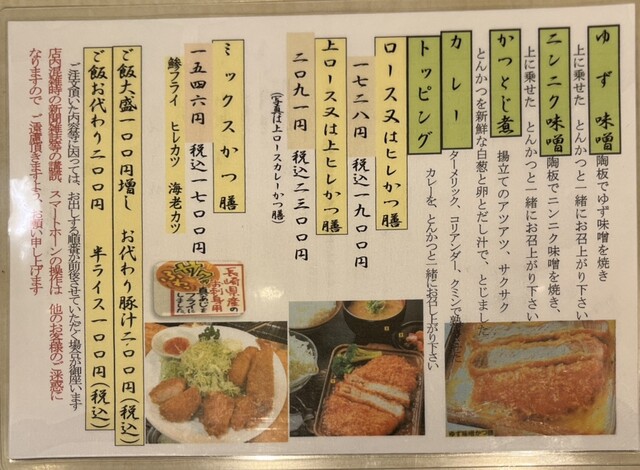 ゆず味噌
陶板でゆず味噌を焼き
上に乗せた とんかつと一緒にお召上がり下さい
ニンニク味噌
陶板でニンニク味噌を焼き、
上に乗せた とんかつと一緒にお召上がり下さい
かつとじ煮
揚立てのアツアツ、サクサク
とんかつを新鮮な白葱と卵とだし汁で、とじました
カレー
ターメリック、コリアンダー、クミンで
カレーを、とんかつと一緒にお召上がり下さい
トッピング
ロース又はヒレかつ膳
一七二八円 税込一九〇〇円
上ロース又は上ヒレかつ膳
二〇九一円 税込二三〇〇円
(写真は上ロースカレーかつ膳)
ミックスかつ膳
一五四六円 税込一七〇〇円
鯵フライ ヒレカツ 海老カツ
長崎県産の
お刺身用
ご飯大盛一〇〇円増し お代わり豚汁二〇〇円(税込)
ご飯お代わり二〇〇円 半ライス一〇〇円(税込)
ご注文頂いた内容等に因っては、お出しする順番が前後させていただく場合が御座います
店内混雑時の新聞雑誌等の購読、スマートホーンの操作は 他のお客様のご迷惑に
なりますので ご遠慮頂きますよう、お願い申し上げます